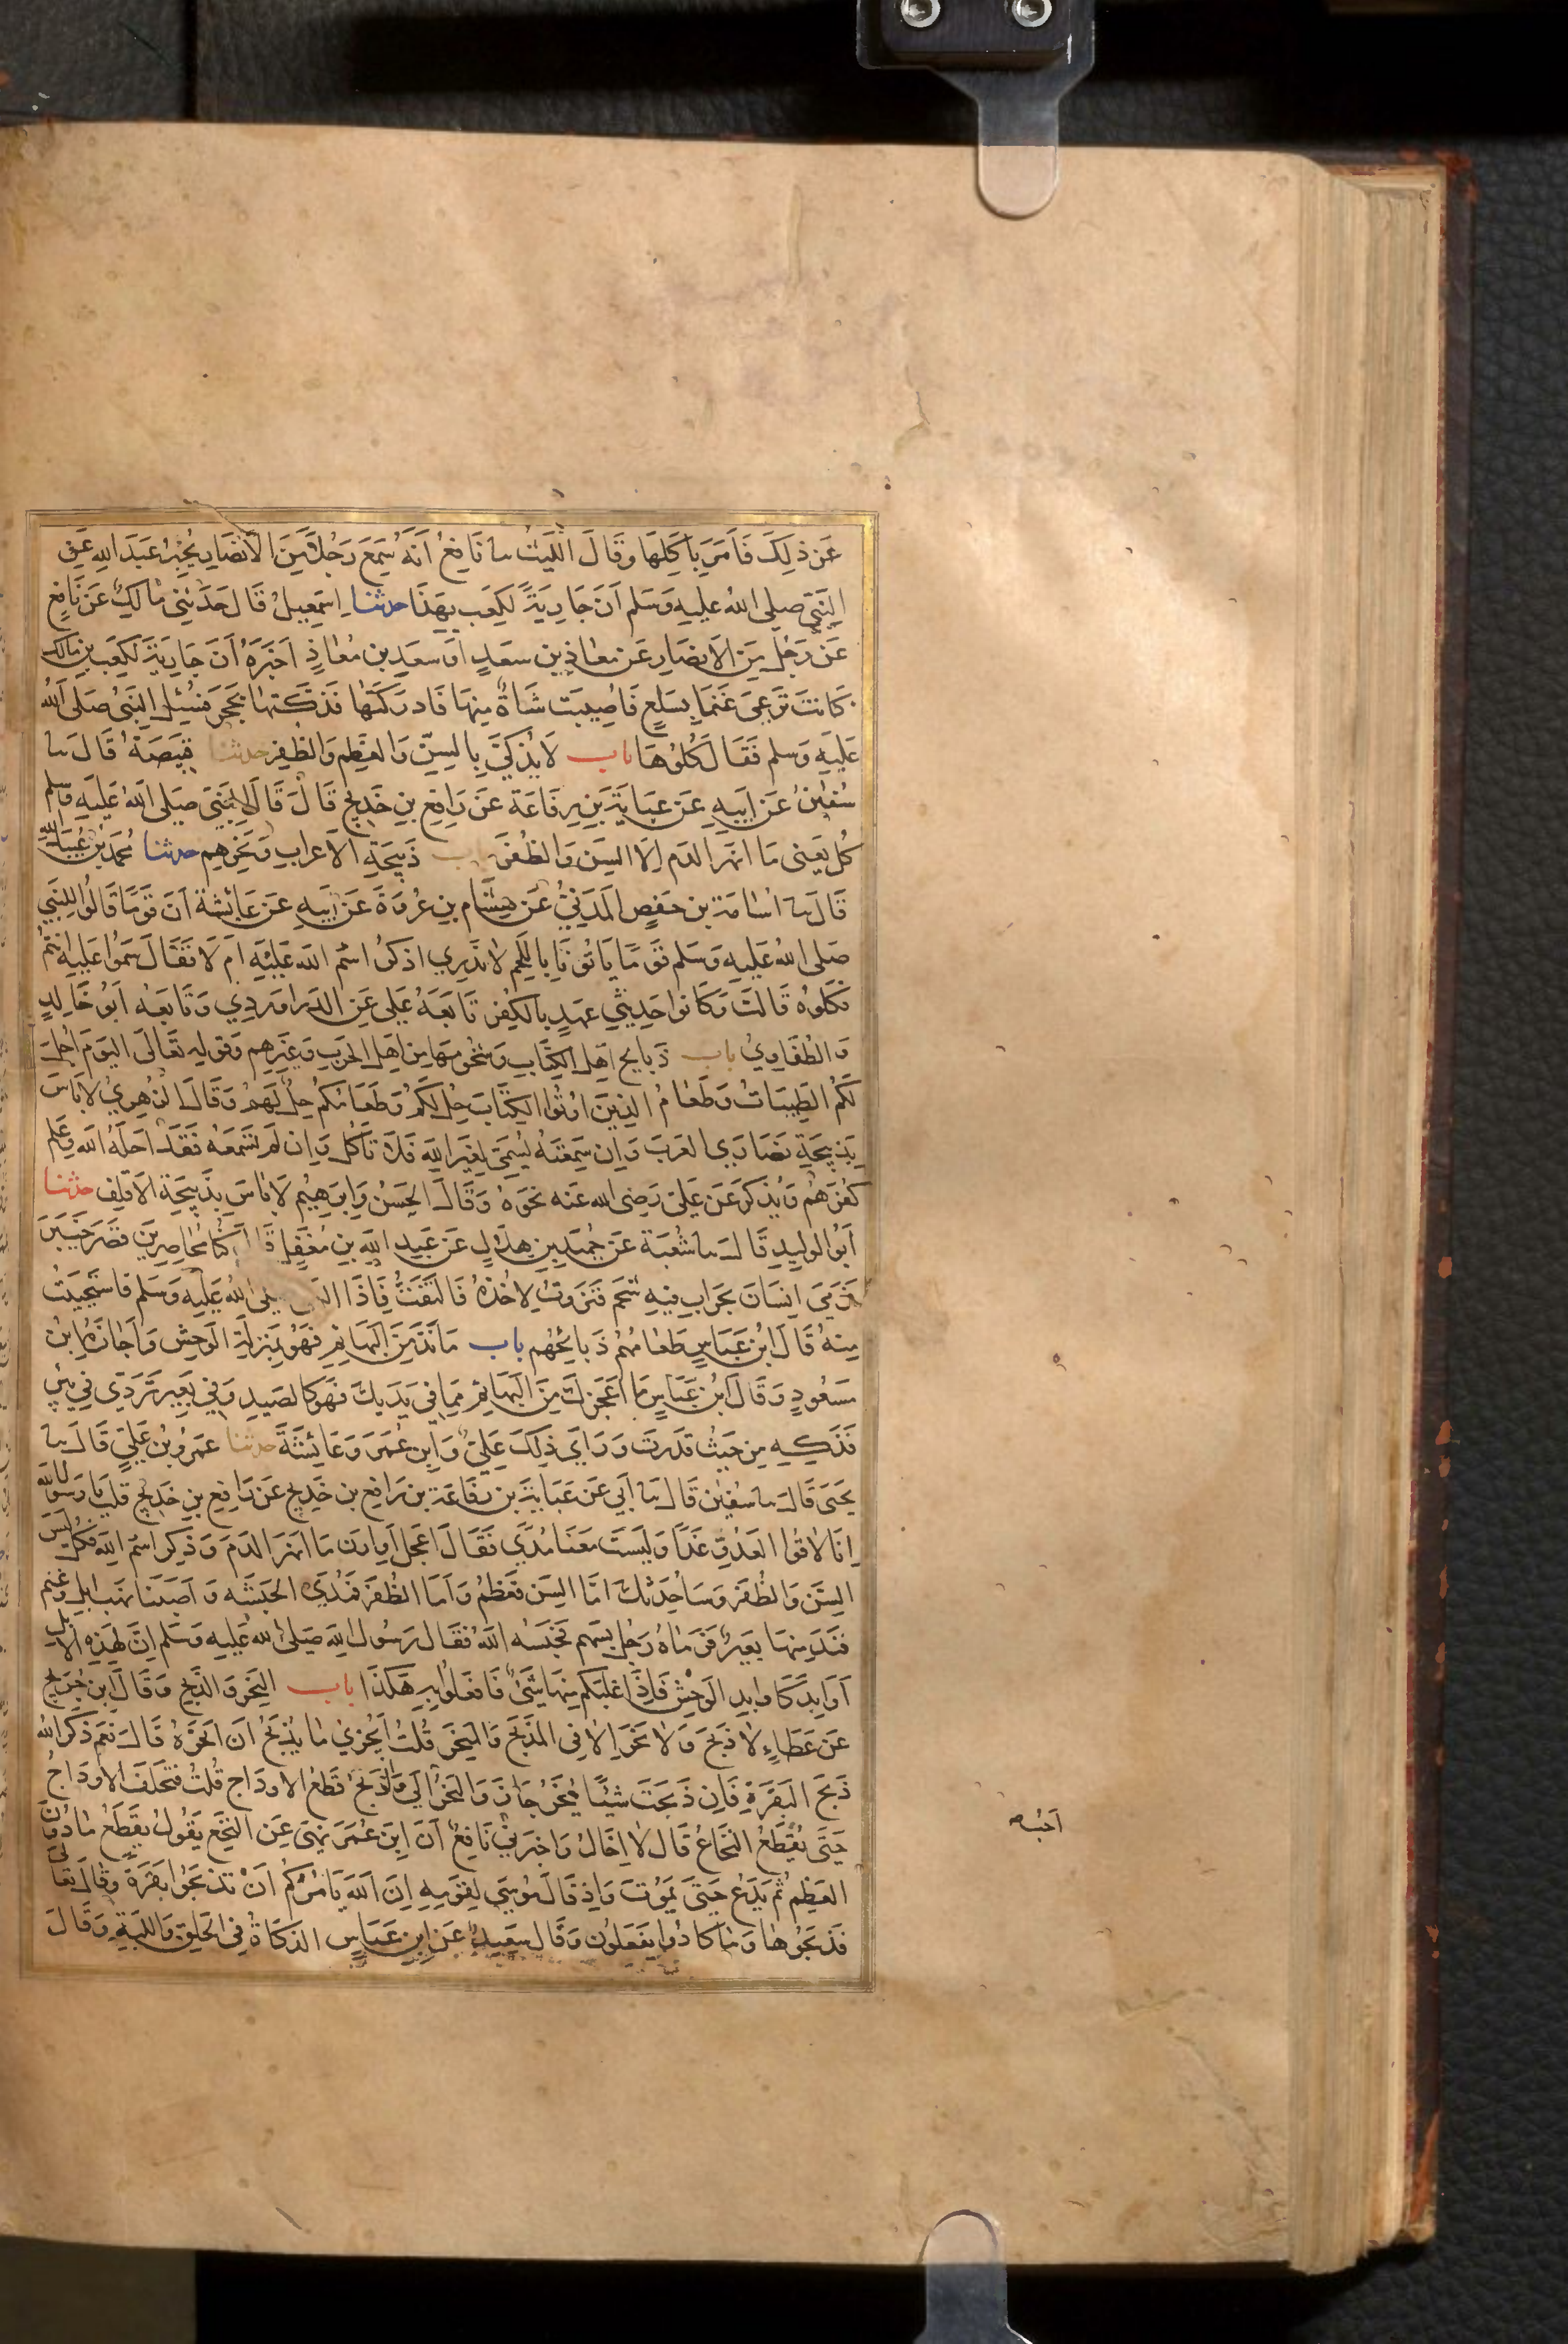 عَن ذلِكَ فَأمَرَ بأكلِهَا وقَالَ اللَّيثُ سا نَافِعٌ أنَّهُ سَمِعَ رَجُلًا مِنَ الأنصَارِ يُخبِرُ عَبدَ اللهِ عَنِ
النَّبيِّ صلى اللهُ عليهِ وَسَلم أنَّ جَاريَةً لكَعبٍ بِهَذَا حدثنا إسمَعِيلُ قَالَ حَدَّثَنِي مَالِكٌ عَن نَّافِعٍ
عَن رَجُلٍ مِنَ الأنصَارِ عَن معَاذِ بنِ سَعدٍ أو سَعدِ بنِ مُعَاذٍ أخبَرَهُ أنَّ جَارِيَةً لِكَعبِ بنِ مَالِكٍ
كَانَت تَرعَى غَنَمًا بِسَلعٍ فَأُصِيبَت شَاةٌ مِنهَا فَأدرَكَتهَا فَذَكَّتهَا بِحَجَرٍ فَسُئِلَ النَّبيُّ صَلى اللهُ
عَلَيهِ وَسلم فَقَالَ كُلُوهَا باب لَا يُذَكَّى بِالسِنِّ وَالعَظمِ وَالظُّفرِ حدثنا قَبِيصَةُ قَالَ سا
سُفيٰنُ عَن أبِيهِ عَن عبَايَةَ بنِ رِفَاعَةَ عَن رَافِعِ بنِ خَدِيجٍ قَالَ قَالَ النَّبيُّ صَلى اللهُ عَلَيهِ وَسلم
كُل يَعنِي مَا أنهَرَ الدَّمَ إلَّا السِنَّ وَالظُّفُرَ باب ذَبِيحَةِ الأعرَابِ وَنَحوِهِم حدثنا مُحَمدُ بنُ عُبَيدِ اللهِ
قَالَ سا أُسَامَةُ بن حَفصٍ المَدِينِيُّ عَن هِشَامِ بنِ عُروَةَ عَن أبِيهِ عَن عَائِشَةَ أنَّ قَومًا قَالُوا للنَّبِي
صَلى اللهُ عَلَيهِ وَسلم قَومًا يَأتُونَا بِاللَّحمِ لَا نَدرِي أذُكِرَ اسمُ اللهِ عَلَيهِ أم لَا فَقَالَ سَمُّوا عَلَيهِ أنتُم
فَكُلُوهُ قَالَت وَكَانُوا حَدِيثِي عَهدٍ بِالكُفرِ تَابَعَهُ عَلِي عَنِ الدَّرَاوَردِي وَتَابَعَه أبُو خَالِدٍ
وَالطُّفَاوِيُّ باب ذَبَايحِ أهلِ الكِتَابِ وَشُحُومِهَا مِن أهلِ الحَربِ وَغَيرِهِم وَقَولِهِ تَعَالَى اليَومَ أُحِلَّ
لَكُمُ الطَّيِّبَاتُ وَطَعَامُ الذِينَ أُوتُوا الكِتَابَ حِلٌّ لَكُم وَطَعَامُكُم حِلٌّ لَهُم وَقَالَ الزُّهرِيُّ لَا بَأسَ
بِذَبِيحَةِ نصَارِي العَرَبِ وَإن سَمِعتَهُ يُسَمِّي لِغَيرِ اللهِ فَلَا تَأكُل وَإن لَم تَسمَعهُ فَقَد أحَلَّهُ اللهُ وَعَلِمَ
كُفرَهُم وَيُذكَرُ عَن عَلِيٍّ رَضى الله عَنه نَحوُهُ وَقَالَ الحَسَنُ وَإبرَهِيمُ لَا بَأسَ بِذَبِيحَةِ الأقلَفِ حدثنا
أبُو الوَلِيدِ قَالَ سا شُعبَةُ عَن حُمَيدِ بنِ هِلَالٍ عَن عَبدِ اللهِ بنِ مُغَفَّلٍ قَالَ كُنَّا مُحَاصِرِينَ قَصرَ خَيبَرَ
فَرَمَى إنسَانٌ بِجِرَابٍ فِيهِ شَحمٌ فَنَزَوتُ لِآخُذَهُ فَالتَفَتُّ فَإذَا النَّبي صلى اللهُ عَلَيهِ وَسَلم فَاستَحيَيتُ
مِنهُ قَالَ ابنُ عَبَاسٍ طَعَامُهُم ذَبَائِحُهُم باب مَا نَدَّ مِنَ البَهَائِمِ فَهُوَ بِمَنزِلَةِ الوَحشِ وَأجَازَهُ ابنُ
مَسعُودٍ وَقَالَ ابنُ عَبَاسٍ مَا أعجَزَكَ مِنَ البَهَائِمِ مِمَّا فِي يَدَيكَ فَهُوَ كَالصَيدِ وَفِي بَعِيرٍ تَرَدَّى فِي بِئرٍ
فَذَكِّهِ مِن حَيثُ قَدَرتَ وَرَأى ذلِكَ عَلِيٌّ وَابنُ عُمَرَ وَعَائِشَةُ حدثنا عَمرُو بنُ عَلِيٍّ قَالَ سا
يَحيَى قَالَ سا سُفيٰن قَالَ سا أبِي عَن عَبَايَةَ بنِ رِفَاعَةَ بنِ رَافِعِ بن خَدِيجٍ عَن رَافِعِ بنِ خَدِيجٍ قُلتُ يَا رَسُولَ اللهِ
إنَّا لَاقُوا العَدُوِّ غَدًا وَلَيسَت مَعَنَا مُدًى فَقَالَ اعجَل أو أرن مَا أنهَرَ الدَمَ وَذُكِرَ اسمُ اللهِ فَكُل لَيسَ
السِنَّ وَالظُفُرَ وَسَأُحَدِّثُكَ أمَّا السِنُّ فَعَظمٌ وَأمَّا الظُّفُرُ فَمُدَى الحَبَشَةِ وَأصَبنَا نَهبَ إبِلٍ وَغَنَمٍ
فَنَدَّ مِنهَا بَعِيرٌ فَرَمَاهُ رَجُلٌ بِسَهمٍ فَحَبَسَهُ اللهُ فَقَالَ رَسُولُ اللهِ صَلى اللهُ عَلَيهِ وَسَلم إنَّ لِهَذِهِ الإبِلِ
أوَابِدَ كَأوَابِدِ الوَحشِ فَإذَا غَلَبَكُم مِنهَا شَيءٌ فَافعَلُوا بِهِ هَكَذَا باب النَّحرِ وَالذَّبحِ وَقَالَ ابنُ جُرَيجٍ
عَن عَطَاءٍ لَا ذَبحَ وَلَا نَحرَ إلَّا فِي المَذبَحِ وَالمَنحَرِ قُلتُ أيُجزِي مَا يُذبَحُ أن أنحَرَهُ قَالَ نَعَم ذَكَرَ اللهُ
ذَبحَ البَقَرَةِ فَإن ذَبَحتَ شَيئًا يُنحَرُ جَازَ وَالنَّحرُ أحَبُّ إلَيَّ وَالذَّبحُ قَطعُ الأودَاجِ قُلتُ فَيُخَلِّفُ الأودَاجَ
حَتَّى يُقطَعَ النّخَاعُ قَالَ لَا إخَالُ وَأخبَرَنِي نَافِعٌ أنَّ ابنَ عُمَرَ نَهَى عَنِ النَّخعِ يَقُولُ يَقطَعُ مَا دُونَ
العَظمِ ثُمَّ يَدَعُ حَتَّى يَمُوتَ وَإذ قَالَ مُوسَى لِقَومِهِ إنَّ اللهَ يَأمُرُكُم أن تَذبَحُوا بَقَرَةً وَقَالَ تَعَالَى
فَذَبَحُوهَا وَمَا كَادُوا يَفعَلُون وَقَالَ سَعِيدٌ عَنِ ابنِ عَبَاسٍ الذَكَاةُ فِي الحَلقِ وَاللَّبَّةِ وَقَالَ